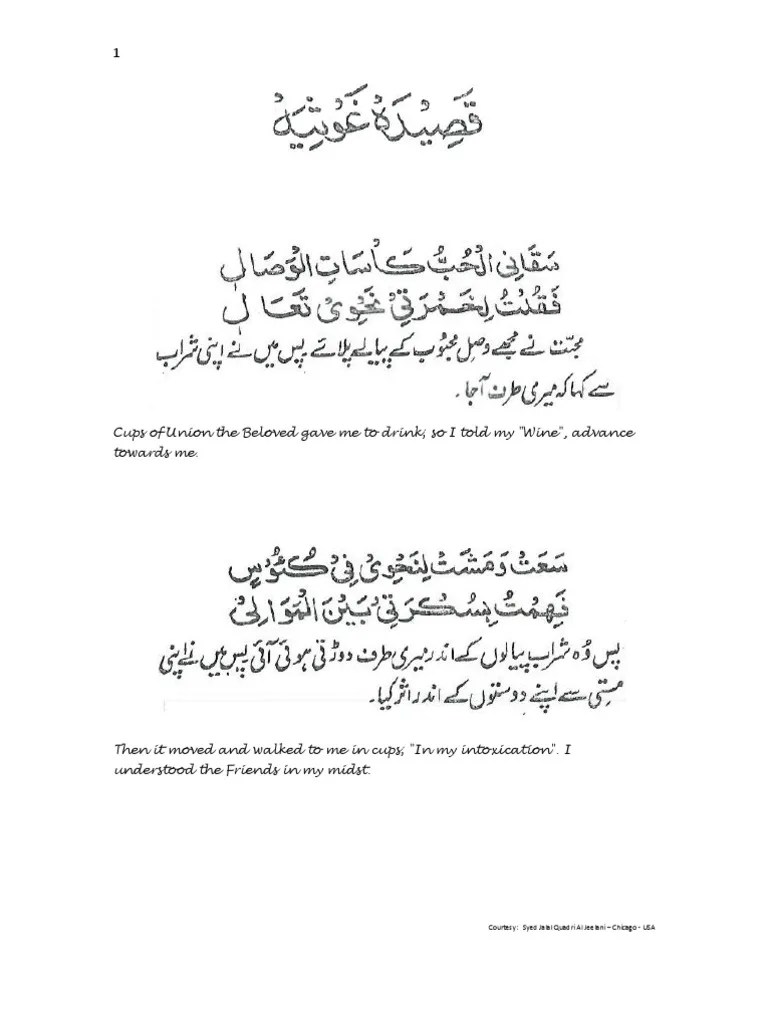 1
قَصِيْدَهْ غَوْثِيَهْ
سَقَانِى الْحُبُّ كَاْسَاتِ الْوَصَالِ
فَقُلْتُ لِخَمْرَتِىْ نَحْوِىْ تَعَالِ
محبّت نے مجھے وصلِ محبوب کے پیالے پلائے پس میں نے اپنی شراب
سے کہا کہ میری طرف آجا۔
Cups of Union the Beloved gave me to drink; so I told my "Wine", advance
towards me.
سَعَتْ وَمَشَتْ لِنَحْوِىْ فِىْ كُئُوْسٍ
فَهِمْتُ بِسُكْرَتِىْ بَيْنَ الْمَوَالِىْ
پس وُہ شراب پیالوں کے اندر میری طرف دوڑتی ہوئی آئی پس میں نے اپنی
مستی سے اپنے دوستوں کے اندر اثر کیا۔
Then it moved and walked to me in cups; "In my intoxication". I
understood the Friends in my midst.
Courtesy: Syed Jalal Quadri Al Jeelani – Chicago - USA